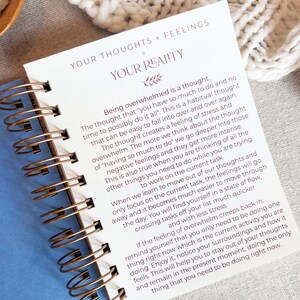 YOUR THOUGHTS + FEELINGS
YOUR REALITY
Being overwhelmed is a thought.
The thought that "you have so much to do and no
time to possibly do it all". This is a habitual thought
that can be easy to fall into over and over again.
The thought creates a feeling of stress and
overwhelm. The more we think about the thought
of "having so much to do" we go deeper into those
negative feelings and they get all the more intense.
this is also true when you are trying
other things you need to do while
to work on the current task.
When we learn to move out of our thoughts and
only focus on the current task, the feelings will go
away and it becomes much easier to move through
the day. You will find yourself in a state of flow,
crossing tasks off your list much quicker,
and with less stress.
If the feeling of overwhelm creeps back in,
remind yourself that you only need to be doing one
thing right now which is the current activity you are
doing. Enjoy it, notice your surroundings and how it
feels. This will help you to stay out of your thoughts
and remain in the present moment, doing the only
thing that you need to be doing right now.